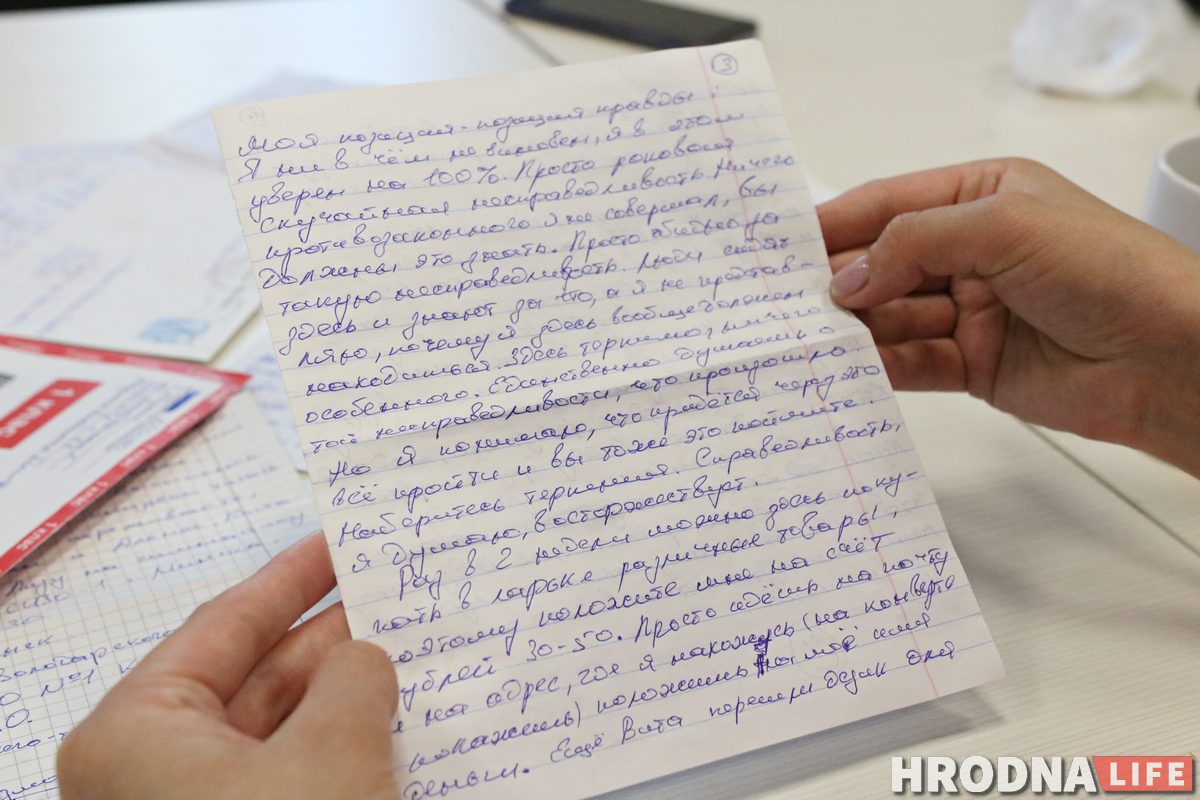 3
Моя позиция - позиция правды.
Я ни в чём не виновен, я в этом
уверен на 100%. Просто роковая
случайная несправедливость. Ничего
противозаконного я не совершал, вы
должны это знать. Просто обидно за
такую несправедливость. Люди сидят
здесь и знают за что, а я не представ-
ляю, почему я здесь вообще должен
находиться. Здесь терпимо, ничего
особенного. Единственно думать о
той несправедливости, что произошло.
Но я понимаю, что придётся через это
всё пройти и вы тоже это поймите.
Наберитесь терпения. Справедливость,
я думаю, восторжествует.
Раз в 2 недели можно здесь поку-
пать в ларьке различные товары,
поэтому положите мне на счёт
рублей 30-50. Просто идёшь на почту
и на адрес, где я нахожусь (на конверте
покажешь) положишь на моё имя
деньги. Ещё Вита перешли
1 КЛАС
1 КЛАС
HRODNA LIFE